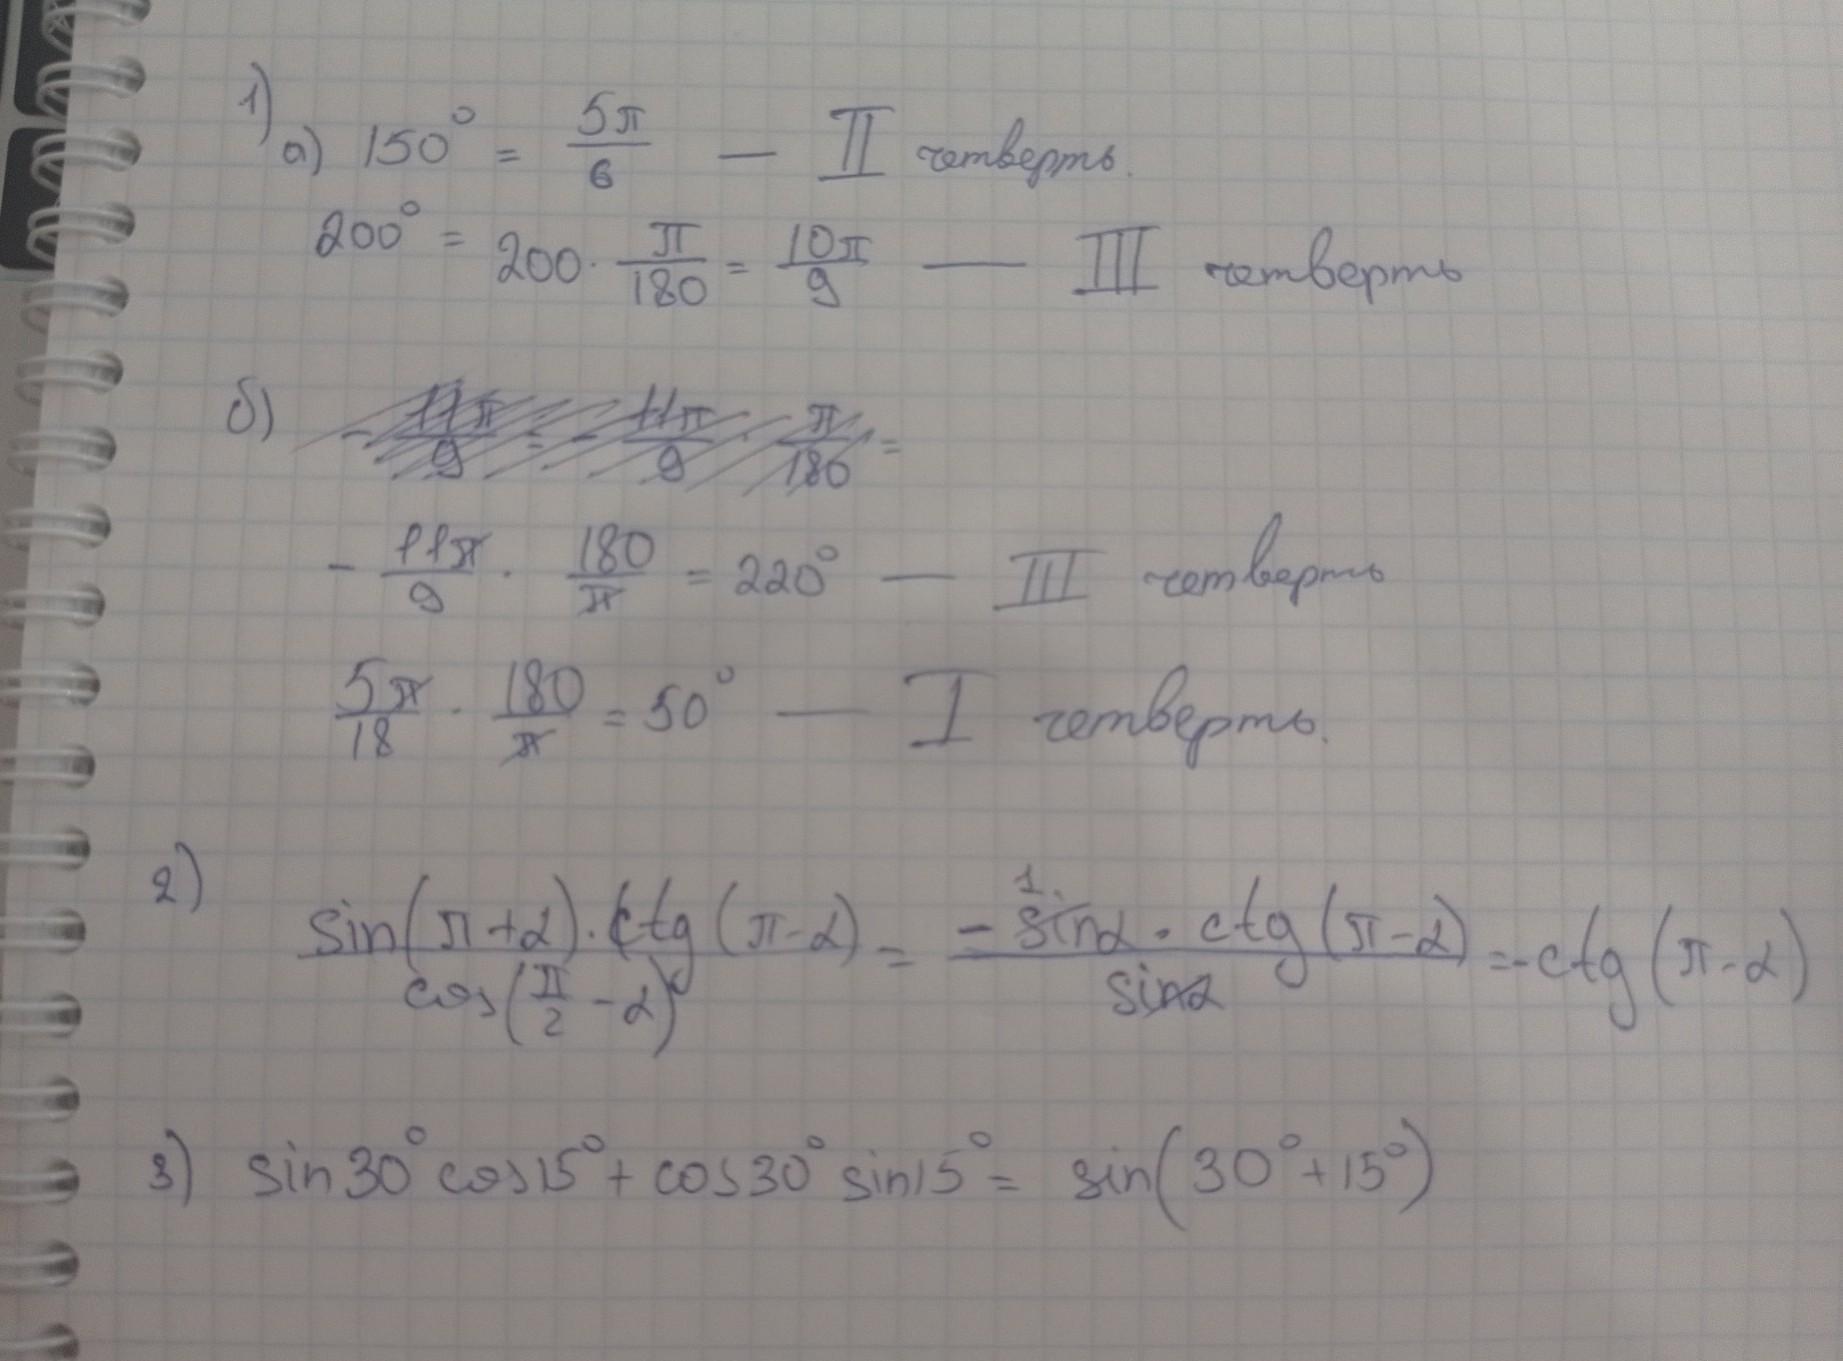 1)
а) 150° = 5π/6 — II четверть.
200° = 200 · π/180 = 10π/9 — III четверть
б) - 11π/9 = - 11π/9 · π/180 =
- 11π/9 · 180/π = 220° — III четверть
5π/18 · 180/π = 50° — I четверть.
2) sin(π+α) · ctg(π-α) / cos(π/2 - α) = -sinα · ctg(π-α) / sinα = -ctg(π-α)
3) sin30° cos15° + cos30° sin15° = sin(30°+15°)